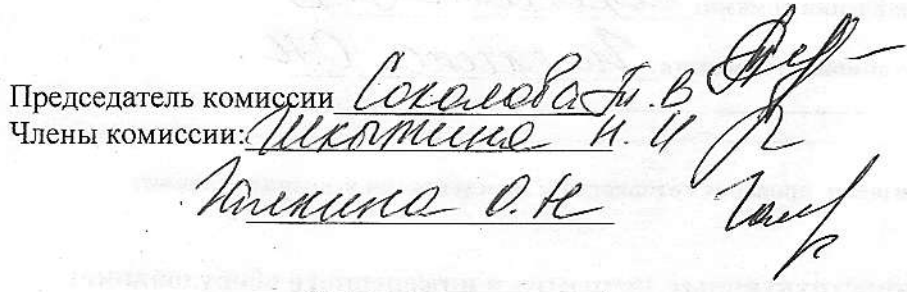 Председатель комиссии Соколова Т. В
Члены комиссии: Шкытина Н. И
Галкина О. Н